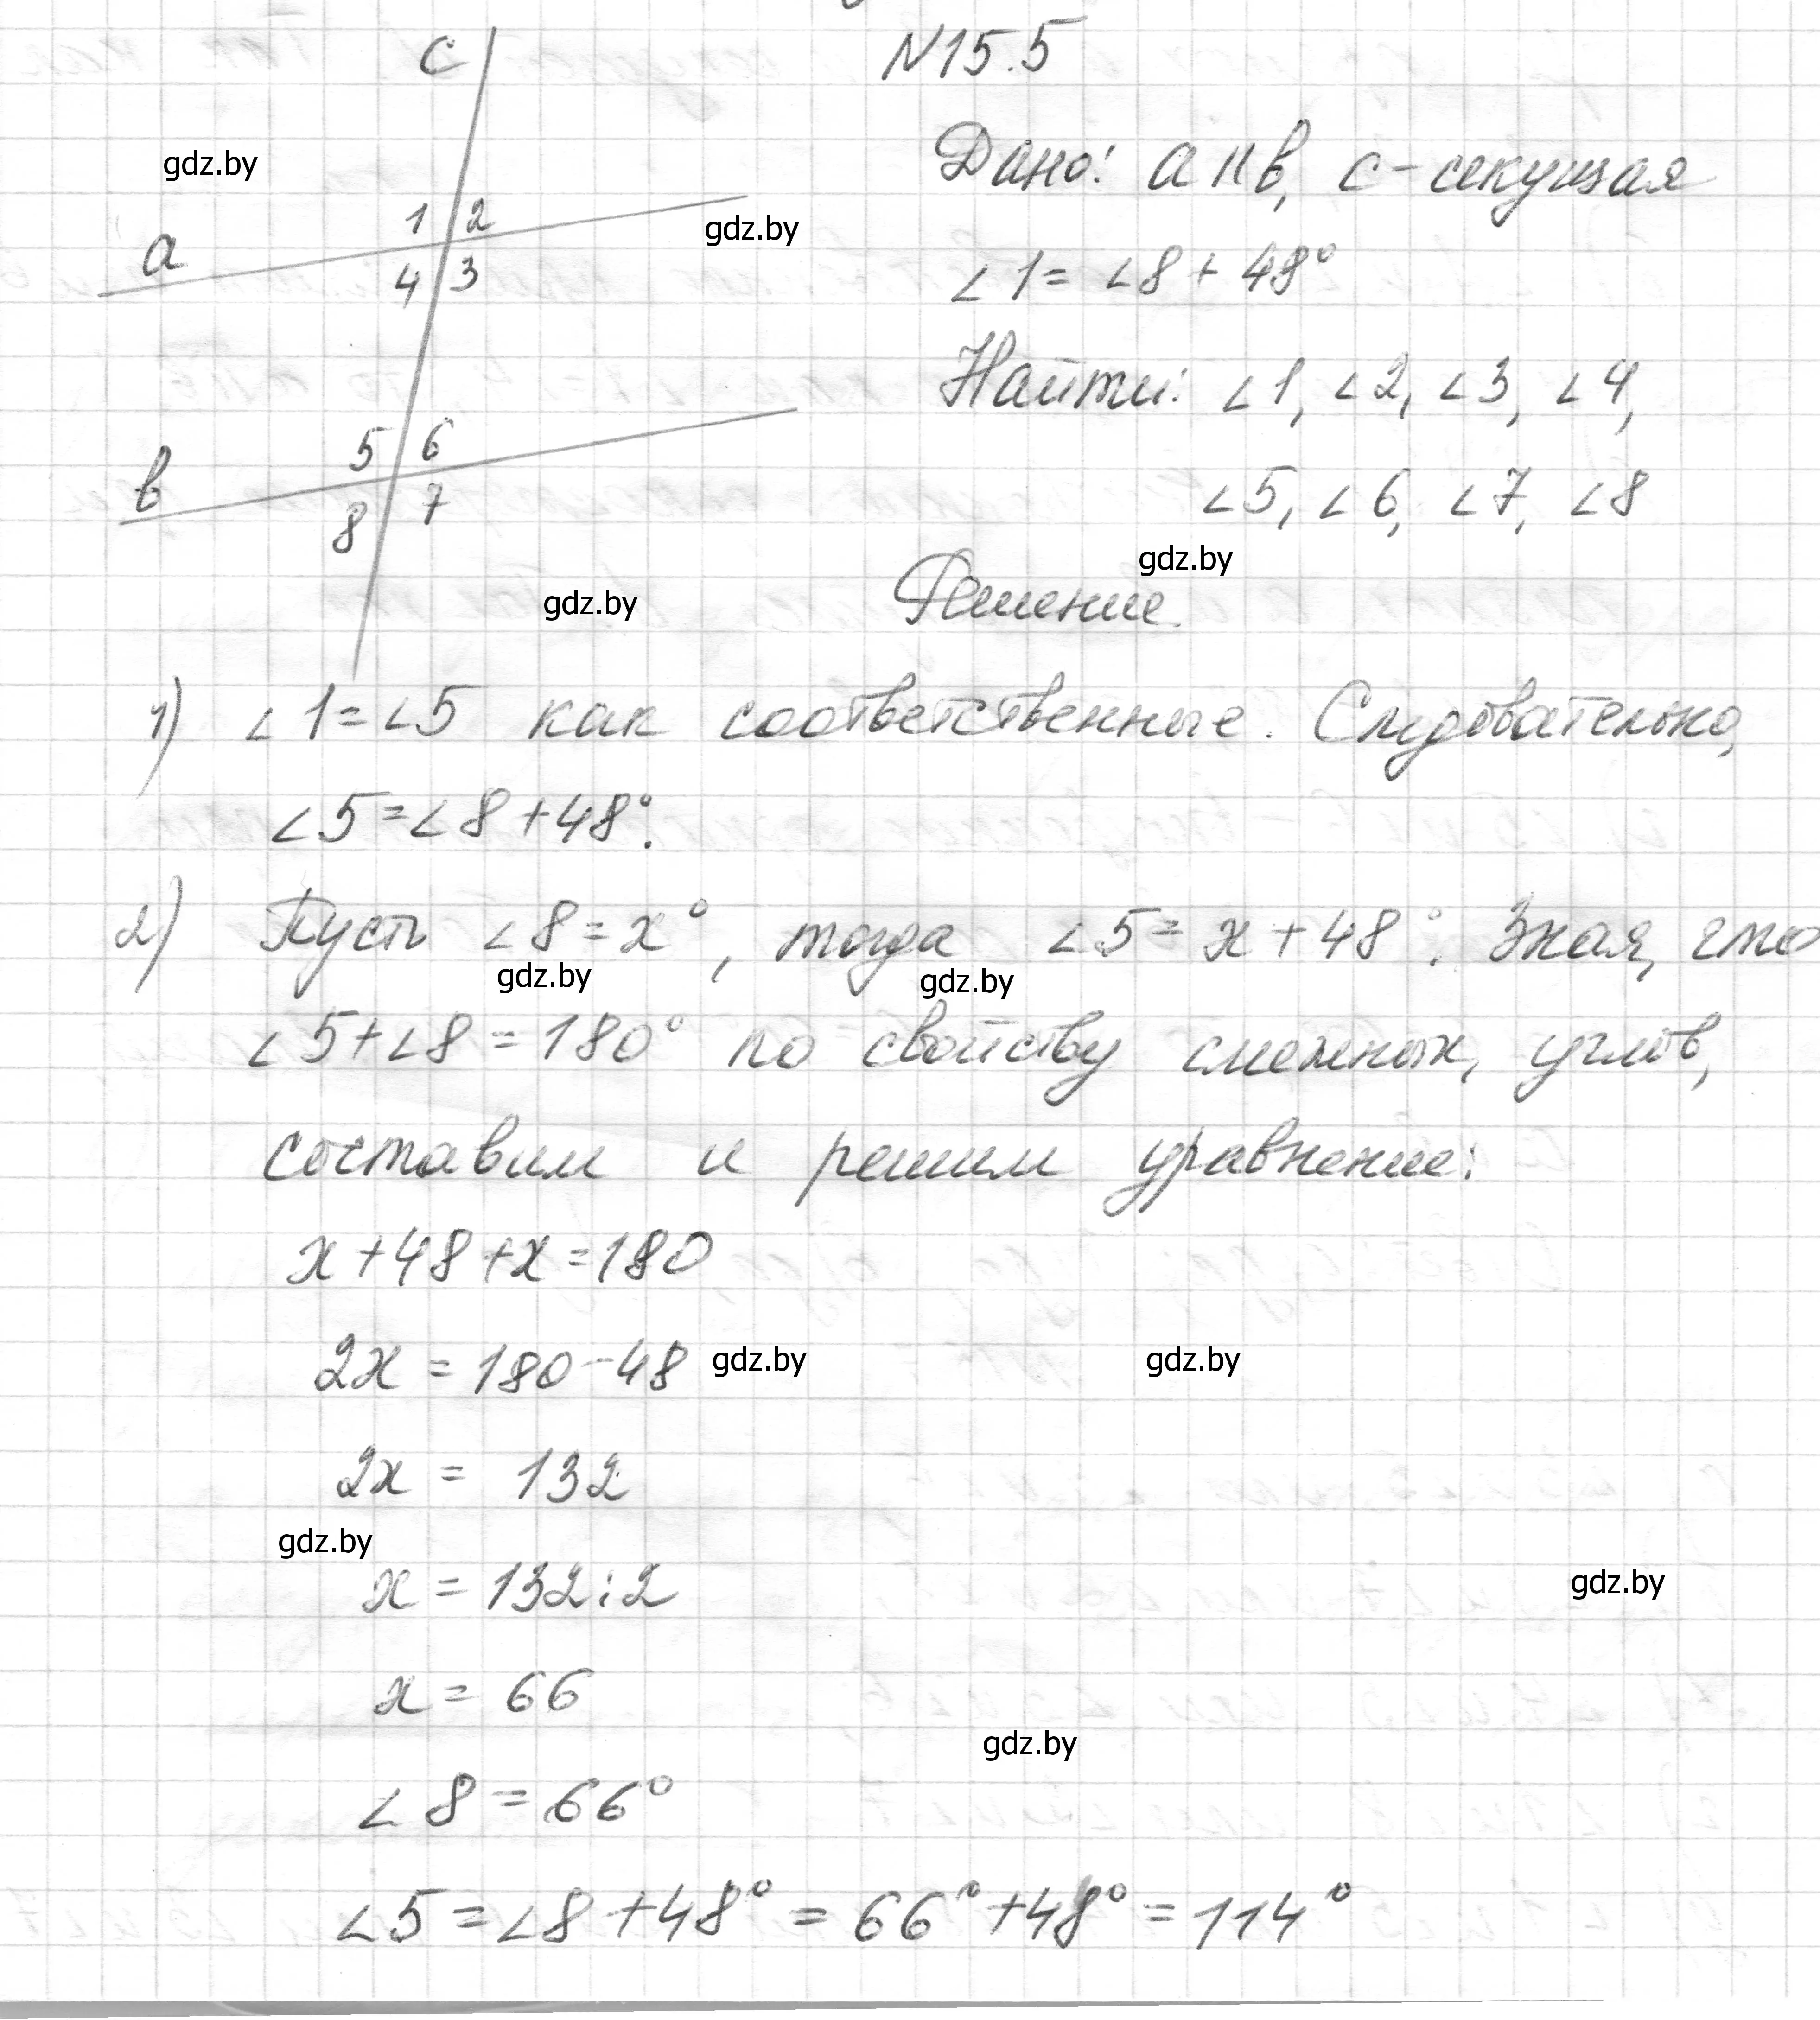 N15.5
c
Дано: a || b, c - секущая
gdz.by
1 2
gdz.by
a
4 3
∠1 = ∠8 + 48°
Найти: ∠1, ∠2, ∠3, ∠4,
5 6
b
8 7
∠5, ∠6, ∠7, ∠8
gdz.by
gdz.by
Решение.
1) ∠1 = ∠5 как соответственные. Следовательно,
∠5 = ∠8 + 48°.
2) Пусть ∠8 = x°, тогда ∠5 = x + 48°. Зная, что
gdz.by
gdz.by
∠5 + ∠8 = 180° по свойству смежных, углов,
составим и решим уравнение:
x + 48 + x = 180
2x = 180 - 48
gdz.by
gdz.by
2x = 132
gdz.by
x = 132 : 2
gdz.by
x = 66
gdz.by
∠8 = 66°
∠5 = ∠8 + 48° = 66° + 48° = 114°